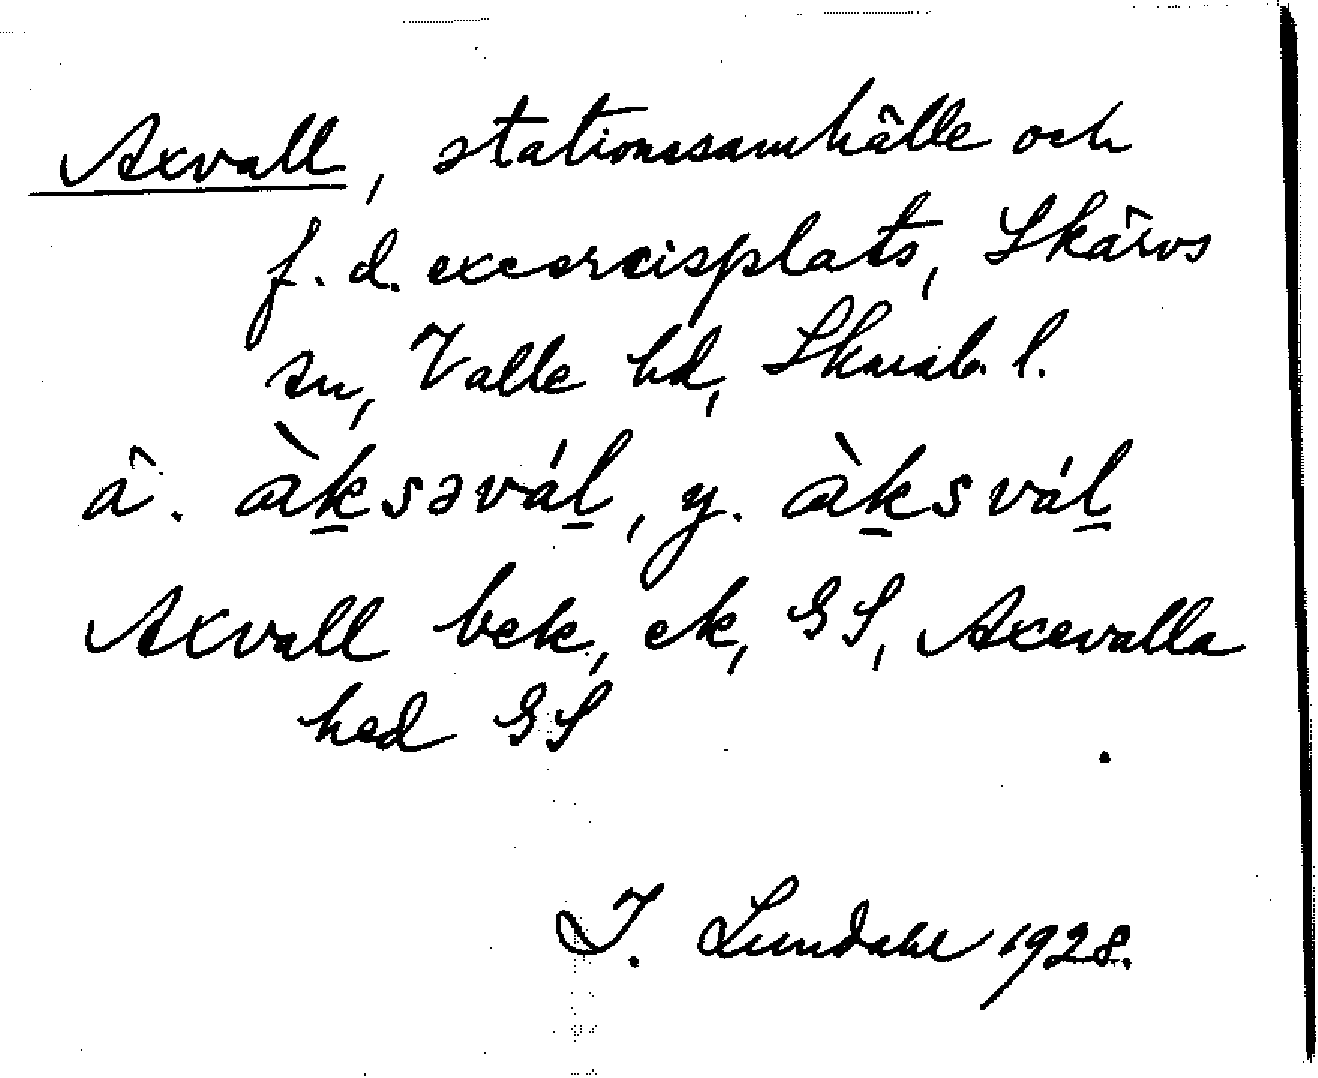 Axvall, stationssamhälle och
f. d. excercisplats, Skärvs
sn, Valle hd, Skarab. l.
ä. àksəvál, y. àksvál
Axvall bek, ek, GS, Axevalla
hed GS
I. Lundahl 1928.